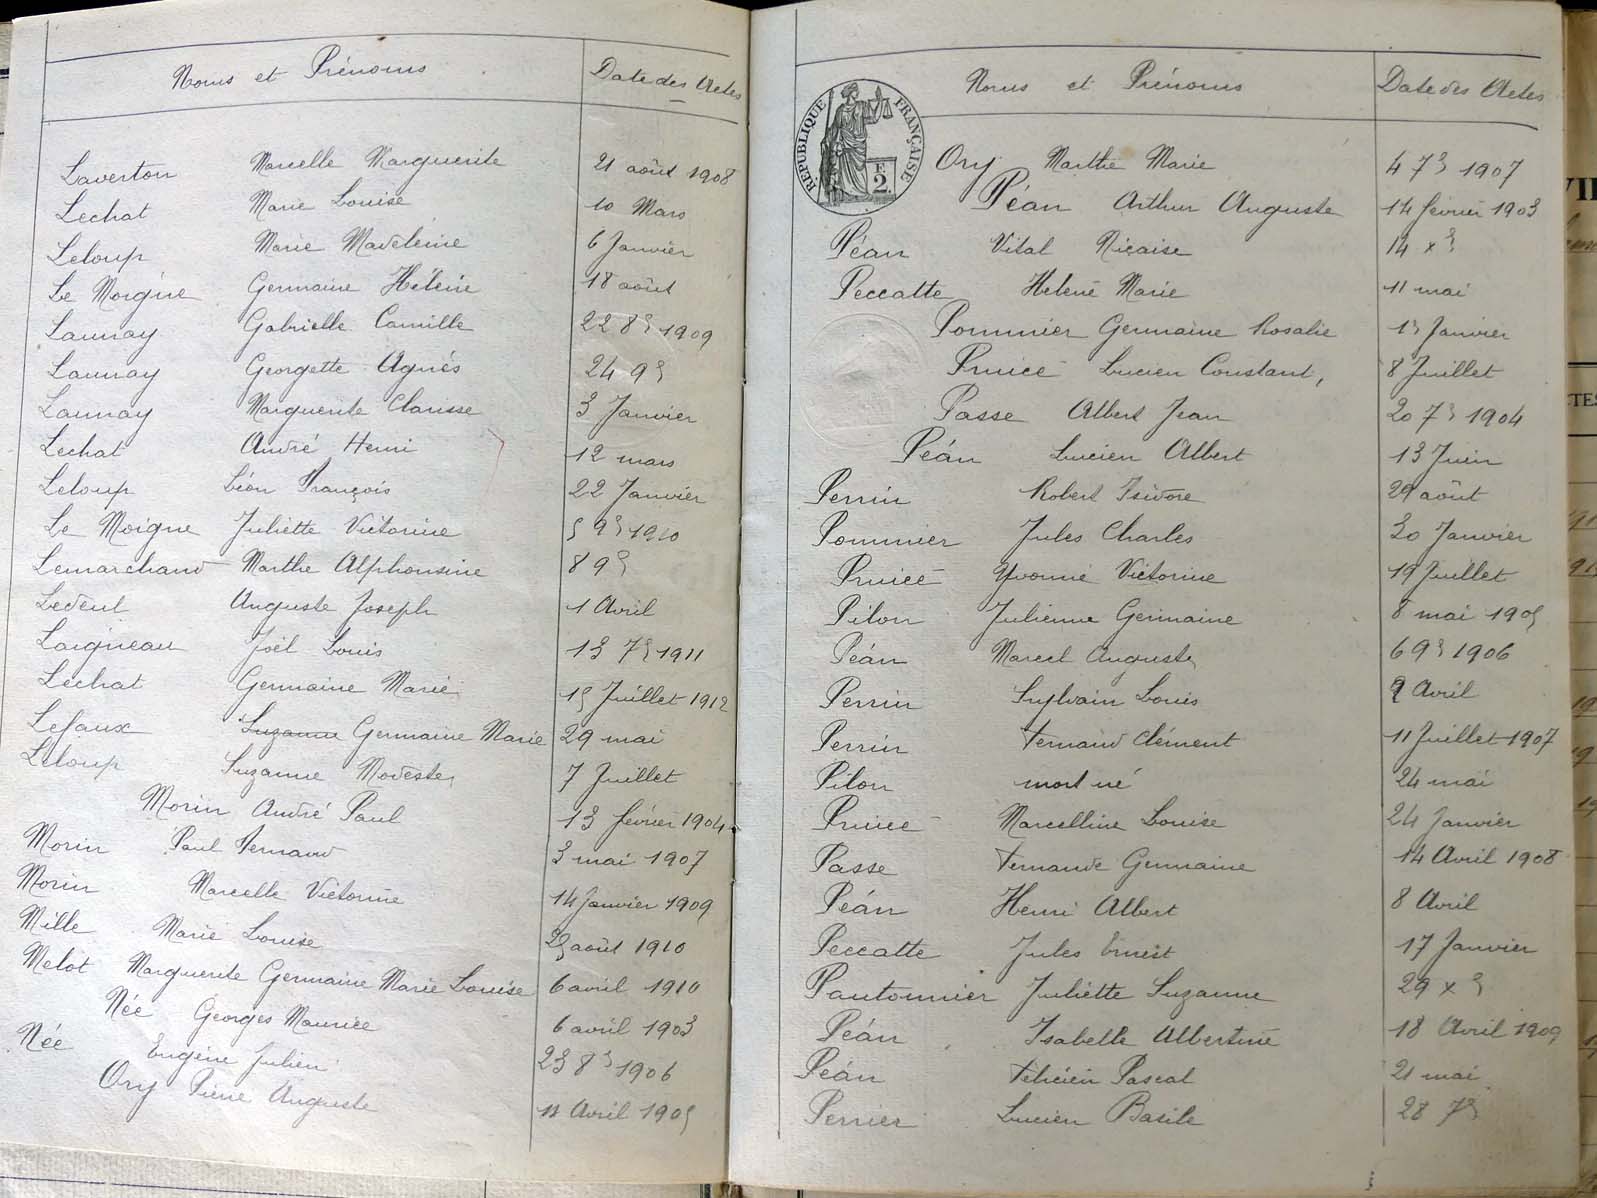 Noms et Prénoms Date des Actes
Laverton Marcelle Marguerite 21 août 1908
Lechat Marie Louise 10 Mars
Leloup Marie Madeleine 6 Janvier
Le Moigne Germaine Hélène 18 août
Launay Gabrielle Camille 22 8bre 1909
Launay Georgette Agnès 24 9bre
Launay Marguerite Clarisse 3 Janvier
Lechat André Henri 12 mars
Leloup Léon François 22 Janvier
Le Moigne Juliette Victorine 5 9bre 1910
Lemarchand Marthe Alphonsine 8 9bre
Ledeul Auguste Joseph 1 Avril
Laigneau Joël Louis 13 7bre 1911
Lechat Germaine Marie 15 Juillet 1912
Lefaux Suzanne Germaine Marie 29 mai
Leloup Suzanne Modeste 7 Juillet
Morin André Paul 13 février 1904
Morin Paul Fernand 3 mai 1907
Morin Marcelle Victorine 14 Janvier 1909
Mille Marie Louise 25 août 1910
Melot Marguerite Germaine Marie Louise 6 avril 1910
Née Georges Maurice 6 avril 1903
Née Eugène Julien 23 8bre 1906
Ory Pierre Auguste 11 Avril 1905
Noms et Prénoms Date des Actes
RÉPUBLIQUE FRANÇAISE
E
2.
Ory Marthe Marie 4 7bre 1907
Péan Arthur Auguste 14 février 1903
Péan Vital Nicaise 14 xbre
Peccatte Helène Marie 11 mai
Pommier Germaine Rosalie 15 Janvier
Pruicé Lucien Constant, 8 Juillet
Passe Albert Jean 20 7bre 1904
Péan Lucien Albert 13 Juin
Perrin Robert Isidore 29 août
Pommier Jules Charles 30 Janvier
Pruicé Yvonne Victorine 19 Juillet
Pilon Julienne Germaine 8 mai 1905
Péan Marcel Auguste 6 9bre 1906
Perrin Sylvain Louis 2 Avril
Perrin Fernand Clément 11 Juillet 1907
Pilon mort né 24 mai
Pruicé Marcelline Louise 24 Janvier
Passe Fernande Germaine 14 Avril 1908
Péan Henri Albert 8 Avril
Peccatte Jules Ernest 17 Janvier
Pautonnier Juliette Suzanne 29 xbre
Péan Isabelle Albertine 18 Avril 1909
Péan Félicien Pascal 21 mai
Perrier Lucien Basile 28 7bre